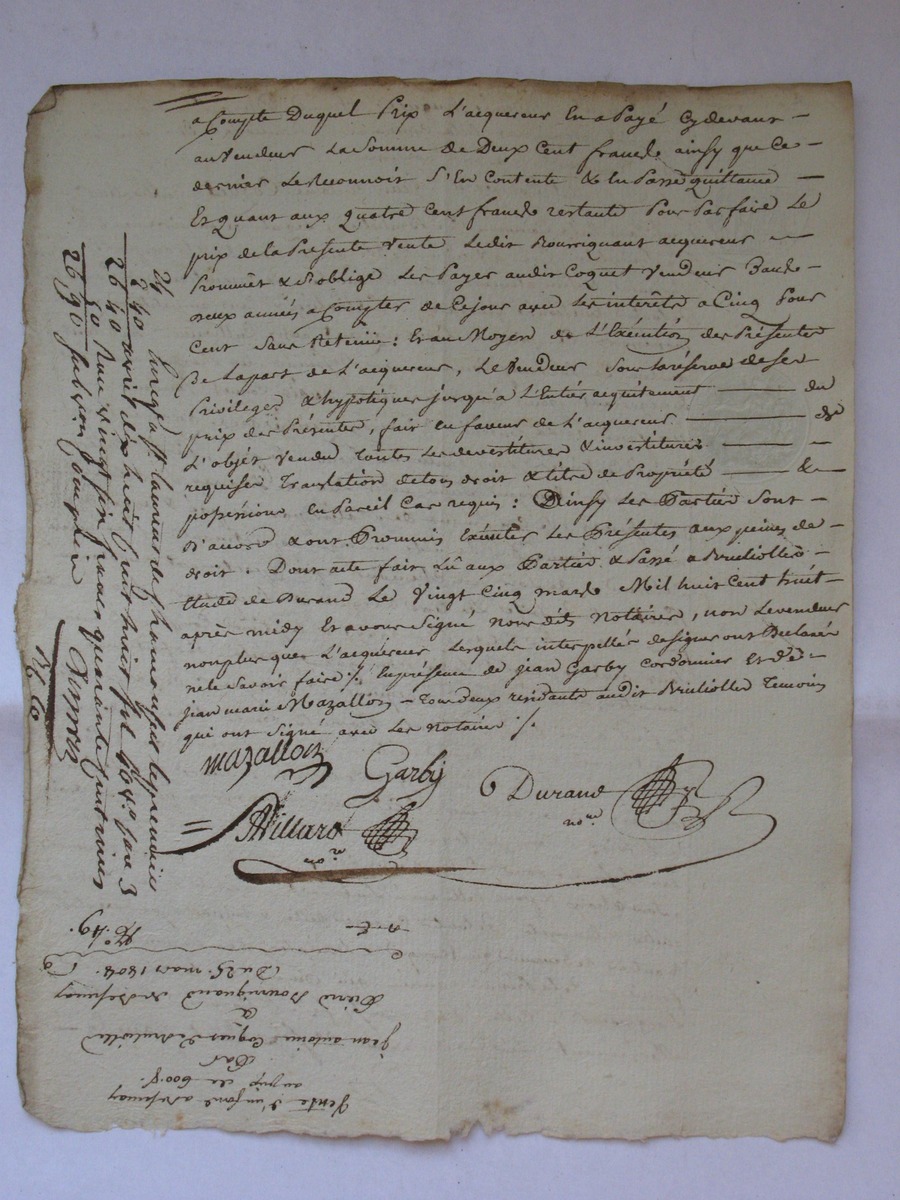 a Compte Duquel Prix L'acquereur En a Payé Cy devant —
au Vendeur La Somme de Deux Cent francds ainsy que Ce —
dernier Le Reconnoit S'En Contente & En Passe quittance —
Et quant aux quatre Cent francds restants Pour Parfaire Le
prix de la Presente Vente Ledit Bourriquant acquereur —
Prommêt & S'oblige Les Payer audit Coquet Vendeur Dans —
deux années a Compter de Ce jour avec Les interêts a Cinq Pour
Cent Sans Retenue : Et au Moyen de L'Exécution des Présentes
De La part de L'acquereur, Le Vendeur Sous La réserve de ses
Privileges & hypotiques jusqu'a L'Entier acquitement —— du
prix des Présentes, fait en faveur de L'acquereur —— de
L'objet vendu toutes Les devestitures & investitures —— —
requises Translation de tous droit & titre de Propriété —— &
possessions en Pareil Cas requis : Dinsy Les Parties Sont —
D'accord & ont Prommis Exécuter Les Présentes aux peines de —
droit . Dont acte fait Lû aux Parties & Passé a Bruliolles —
Etude de Durand Le Vingt Cinq mards Mil huit Cent huit —
après midy Et avons Signé Nous dits Notaires, non Le vendeur
non plus que L'acquereur Lesquels interpellés de signer ont Déclarés
ne le Savoir faire ./. En présence de jean Garby Cordonnier Et de —
jean marie Mazallon — tous deux residants audit Brulioller Temoins
qui ont Signé avec Les Notaires ./.
mazallon
Garby
Durand
nore
Villard
n re
24
2 40
26 40
50
26 90
Enreg. a St. Laurent de Chamousset le premier
avril dix huit Cent huit fol 68 Vo Case 3
Reçu vingt six francs quarante Centimes
subvon Comprise
No. 49.
Vente d'un fond a
au prix de 600 f.
Par
jean antoine Coquet de Brulioller
a
Pierre Bourriquand de
Du 25 mars 1808.